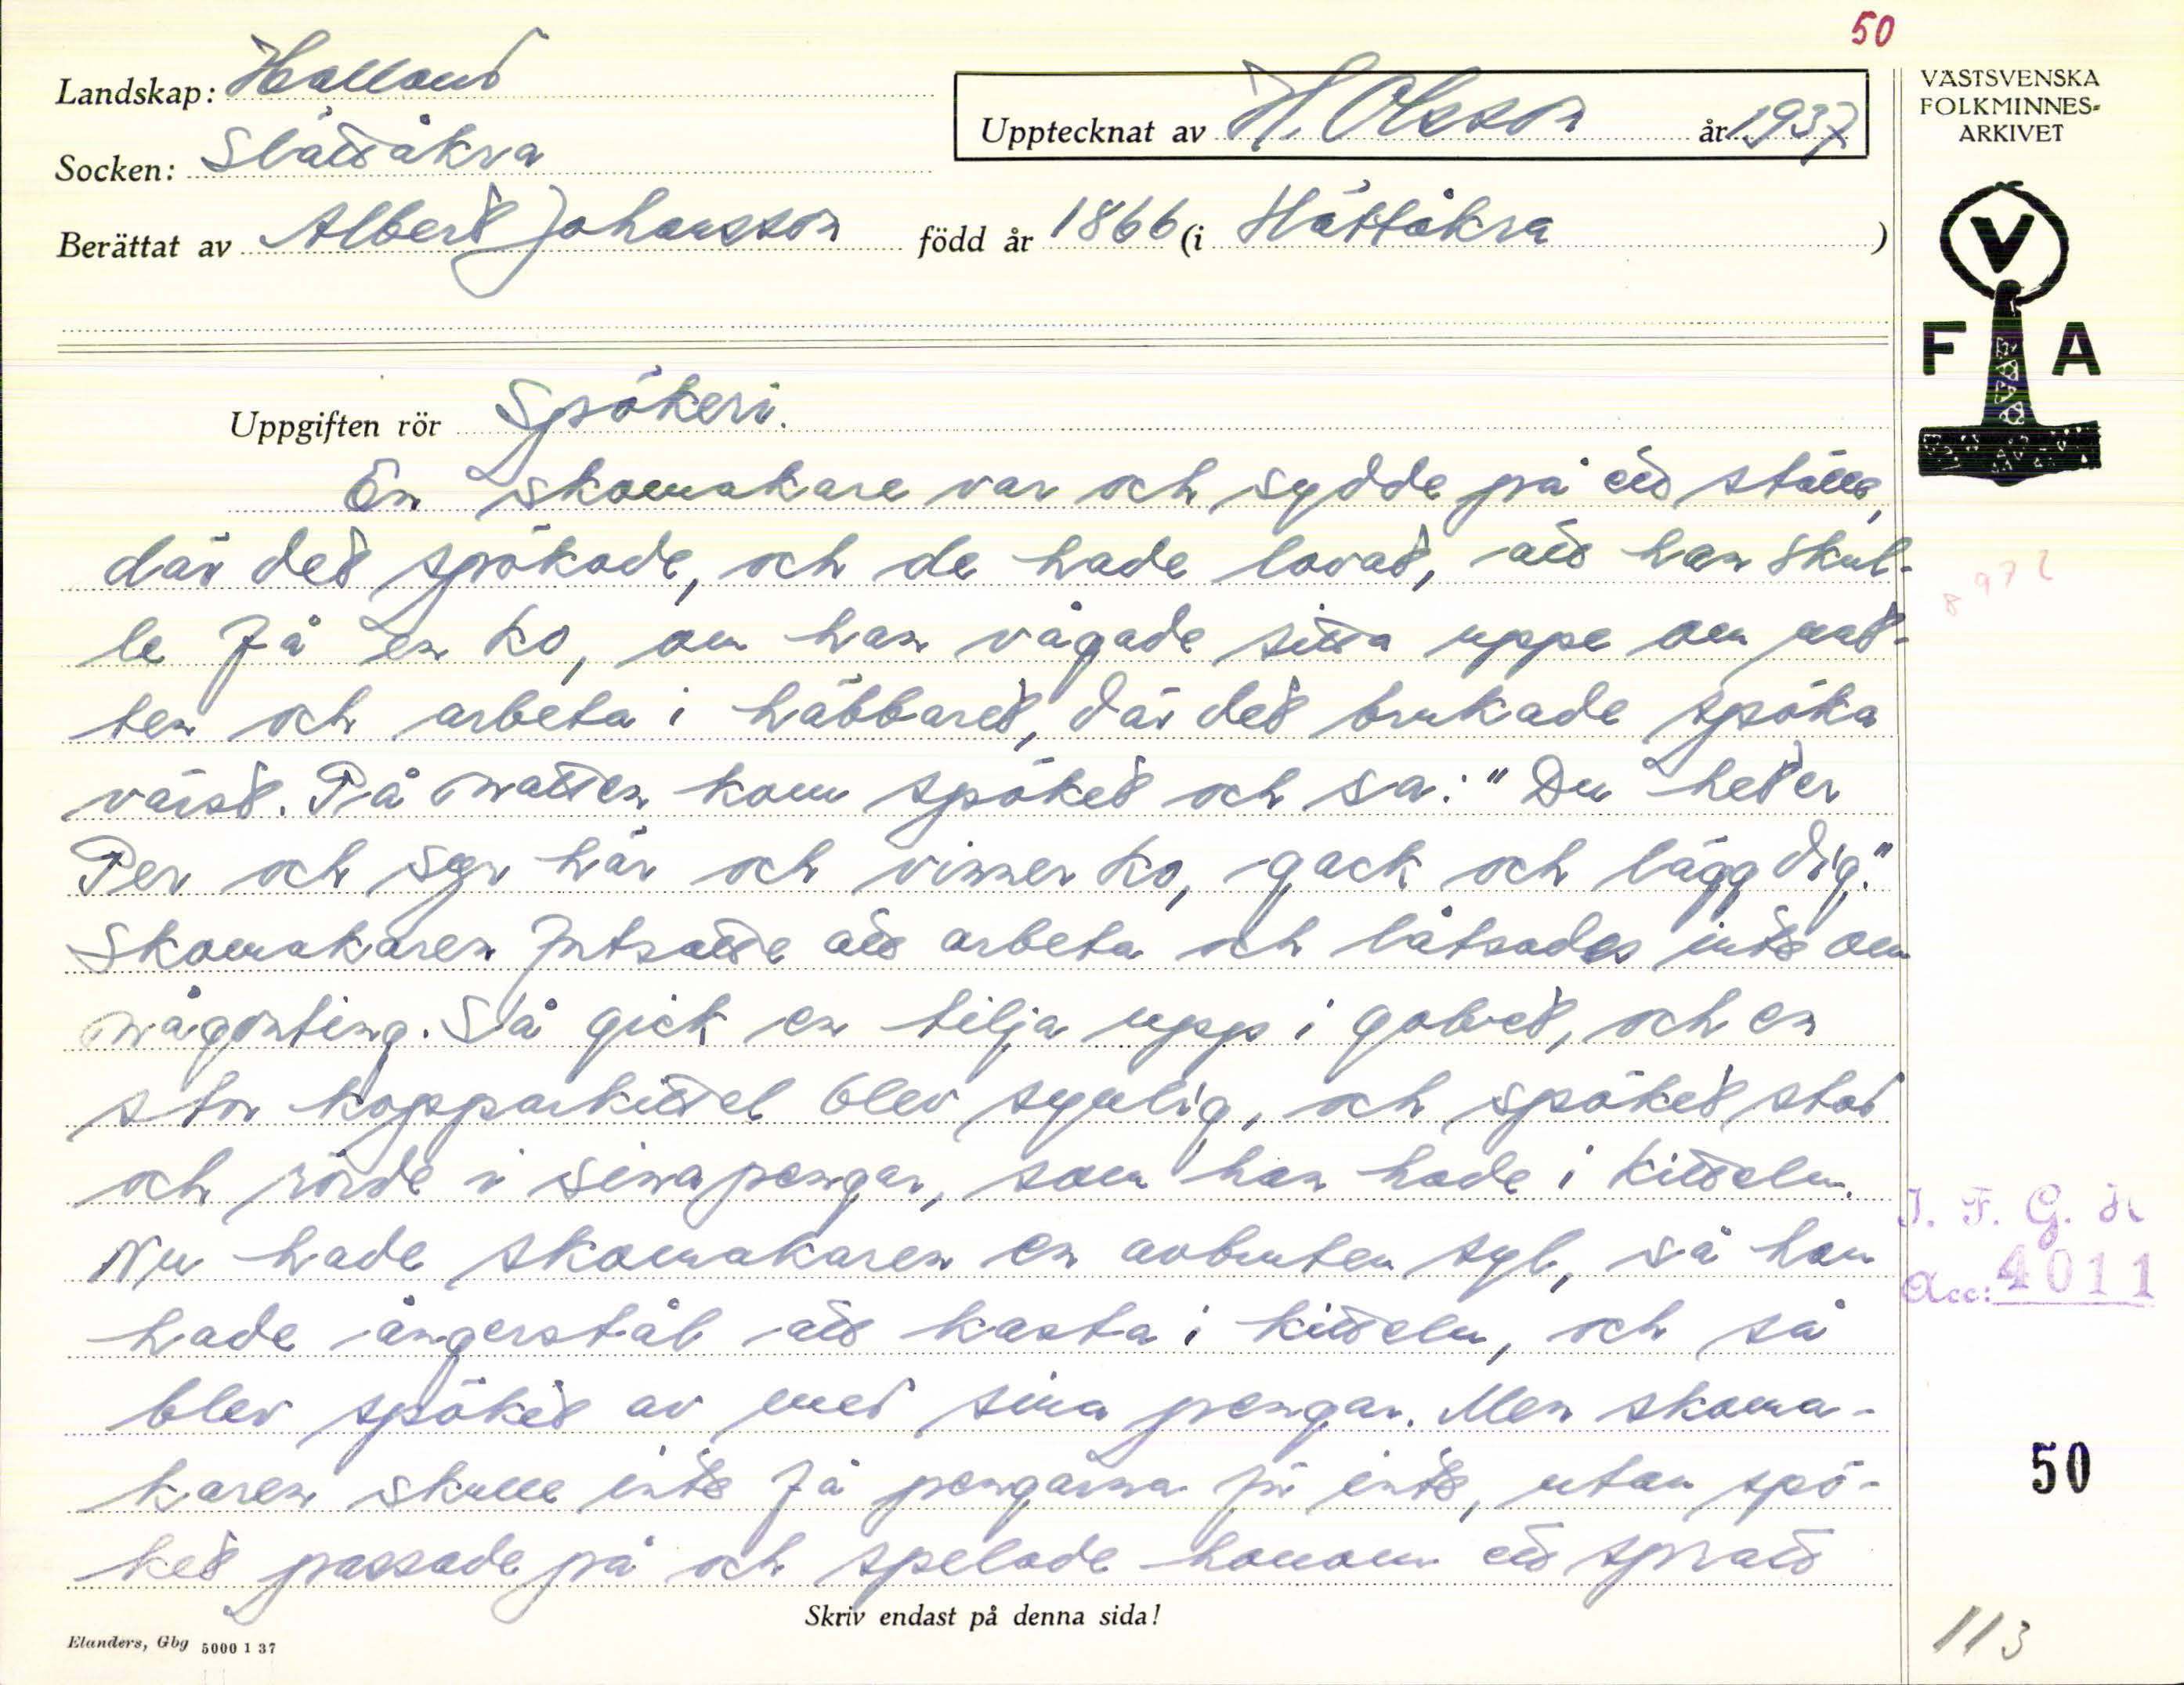 50
Landskap: Halland
Upptecknat av H. Olsson år 1937
VÄSTSVENSKA
FOLKMINNES-
ARKIVET
Socken: Slättåkra
Berättat av Albert Johansson född år 1866 (i Slättåkra )
V
F A
Uppgiften rör Spökeri.
En skomakare var och sydde på ett ställe,
där det spökade, och de hade lovat, att han skul-
8972
le få en ko, om han vågade sitta uppe om nat-
ten och arbeta i häbbaret, där det brukade spöka
värst. På natten kom spöket och sa: "Du heter
Per och syr här och vinner ko, gack och lägg dig."
Skomakaren fortsatte att arbeta och låtsades inte om
någonting. Så gick en tilja upp i golvet, och en
stor kopparkittel blev synlig, och spöket stod
och rörde i sina pengar, som han hade i kitteln.
I. F. G. H.
Nu hade skomakaren en avbruten syl, så han
Acc: 4011
hade ångerstål att kasta i kitteln, och så
blev spöket av med sina pengar. Men skoma-
karen skulle inte få pengarna för inte, utan spö-
50
ket passade på och spelade honom ett spratt
Skriv endast på denna sida!
Elanders, Gbg 5000 1 37
113